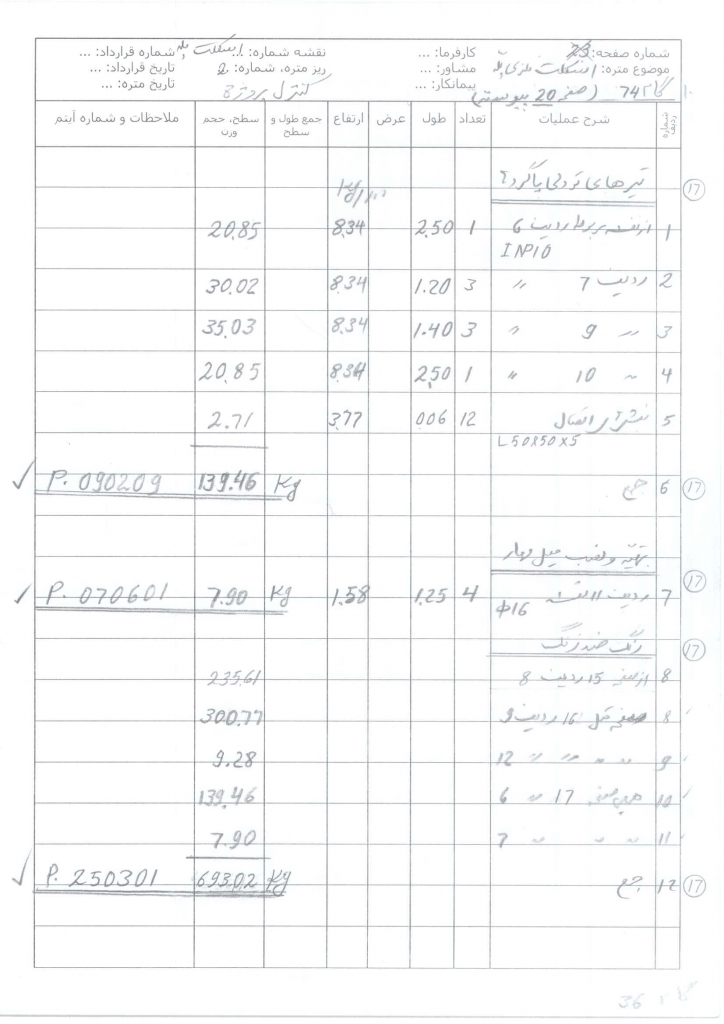 شماره صفحه: 23 کارفرما: ... نقشه شماره: ... اسکلت پله شماره قرارداد: ...
موضوع متره: اسکلت فلزی پله مشاور: ... ریز متره، شماره: 2 تاریخ قرارداد: ...
گام 74 (صفحه 20 پیوست) پیمانکار: ... کنترل پروژه تاریخ متره: ...
شماره ردیف شرح عملیات تعداد طول عرض ارتفاع جمع طول و سطح سطح، حجم وزن ملاحظات و شماره آیتم
17 تیرهای فرعی پاگرد
1 از نقشه مربوط ردیف 6 1 2.50 8.34 20.85
INP10
2 ردیف 7 〃 3 1.20 8.34 30.02
3 〃 9 〃 3 1.40 8.34 35.03
4 〃 10 〃 1 2.50 8.34 20.85
5 نبشی اتصال 12 0.06 3.77 2.71
L 50x50x5
17 6 جمع Kg 139.46 P. 090209
تهیه و نصب میل مهار
17 7 ردیف 11 نقشه 4 1.25 1.58 Kg 7.90 P. 070601
Φ16
17 رنگ ضد زنگ
8 از صفحه 15 ردیف 8 235.61
8 صفحه قبل 16 ردیف 9 300.77
9 〃 〃 〃 〃 12 9.28
10 همین صفحه 17 〃 6 139.46
11 〃 〃 〃 7 7.90
17 12 جمع Kg 693.02 P. 250301
36